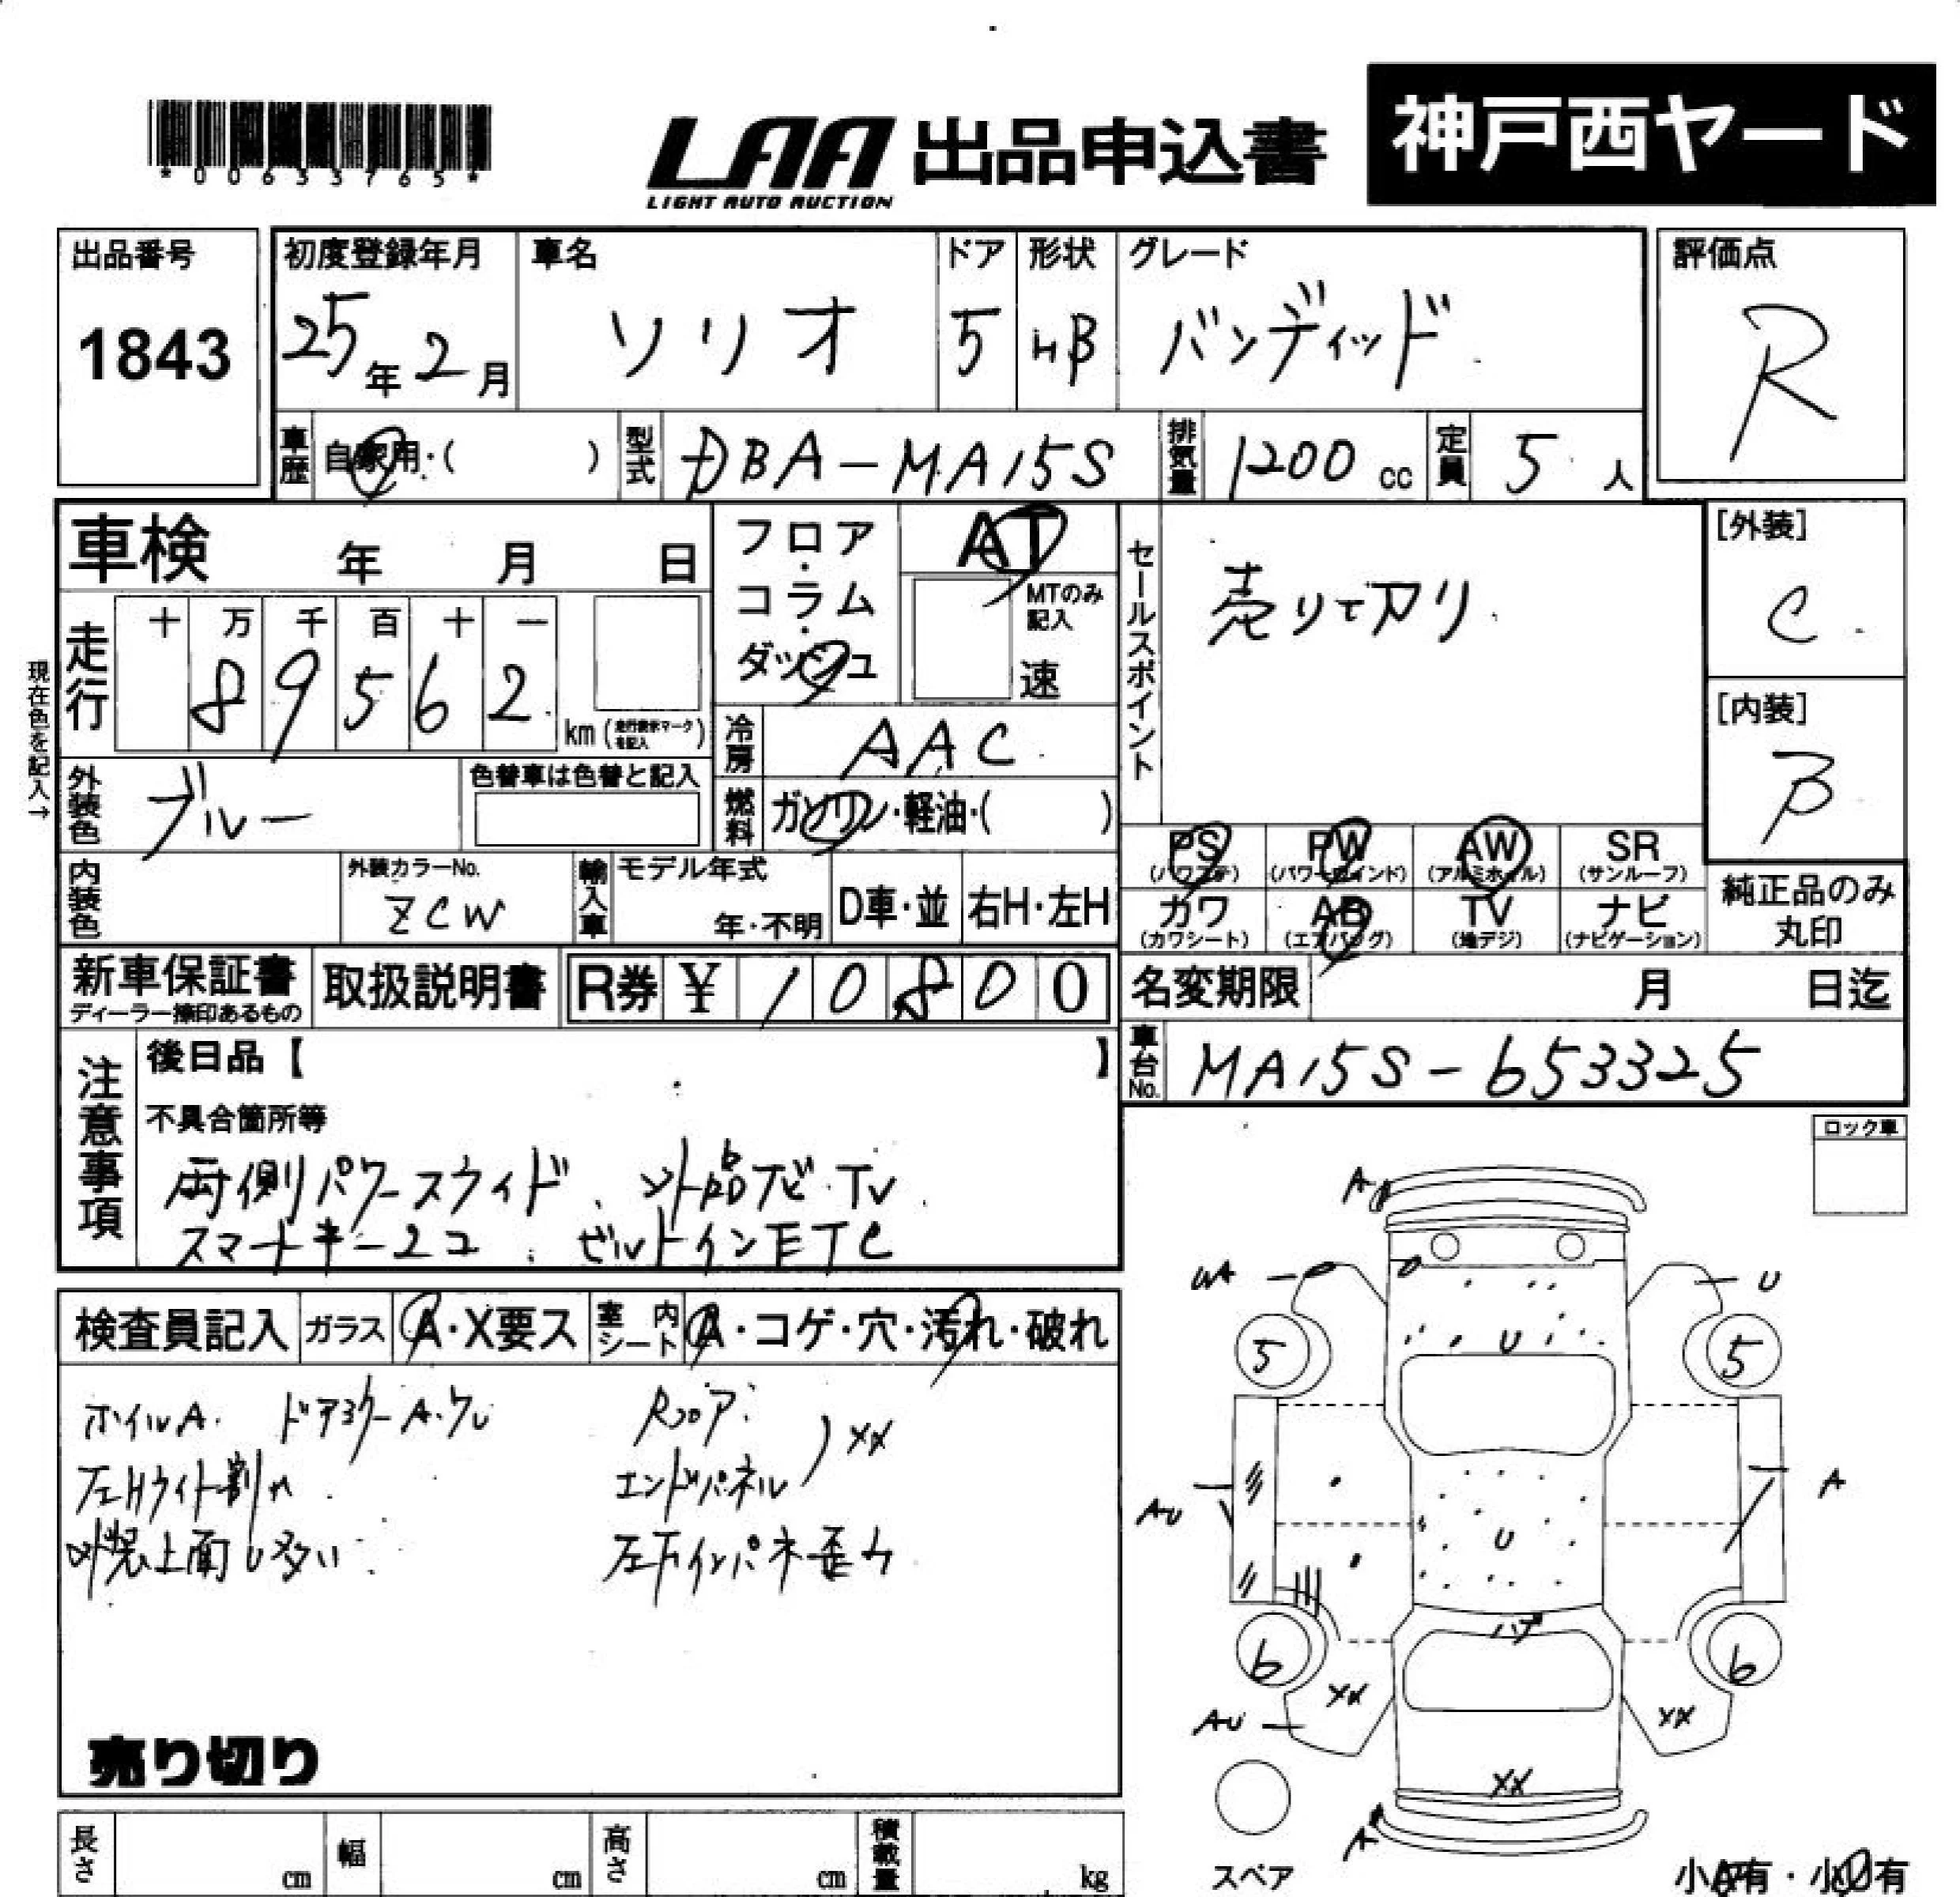 *00633765*
LAA 出品申込書 神戸西ヤード
LIGHT AUTO AUCTION
出品番号 初度登録年月 車名 ドア 形状 グレード 評価点
1843 25年2月 ソリオ 5 HB バンディッド R
車歴 自家用・( ) 型式 DBA-MA15S 排気量 1200 cc 定員 5 人
車検 年 月 日 フロア・コラム・ダッシュ AT セールスポイント 売り切り [外装]
MTのみ記入 速 C
現在色を記入→
走行 十 万 千 百 十 一
8 9 5 6 2 km (走行表示マークを記入) [内装]
冷房 AAC B
外装色 ブルー 色替車は色替と記入 燃料 ガソリン・軽油・( )
PS PW AW SR
(パワステ) (パワーウインド) (アルミホイル) (サンルーフ)
内装色 外装カラーNo. ZCW 輸入車 モデル年式 年・不明 D車・並 右H・左H
カワ AB TV ナビ 純正品のみ
(カワシート) (エアバッグ) (地デジ) (ナビゲーション) 丸印
新車保証書 取扱説明書 R券 ¥ 1 0 8 0 0 名変期限 月 日迄
ディーラー捺印あるもの
注意事項 後日品【 】 車台No. MA15S-653325
不具合箇所等 ロック車
両側パワースライド 社外ナビ・TV
スマートキー2コ ビルトインETC
検査員記入 ガラス A・X要ス 室内シート A・コゲ・穴・汚れ・破れ
ホイルA. ドアミラーA. Rフロア
エンドパネル ) XX
左Hライト割れ
外装上面U多い 左下インパネ歪み
売り切り
A
UA U
U
5 5
AU A
U
6 6
XX XX
AU
XX
A
スペア
長さ cm 幅 cm 高さ cm 積載量 kg 小A有・小U有